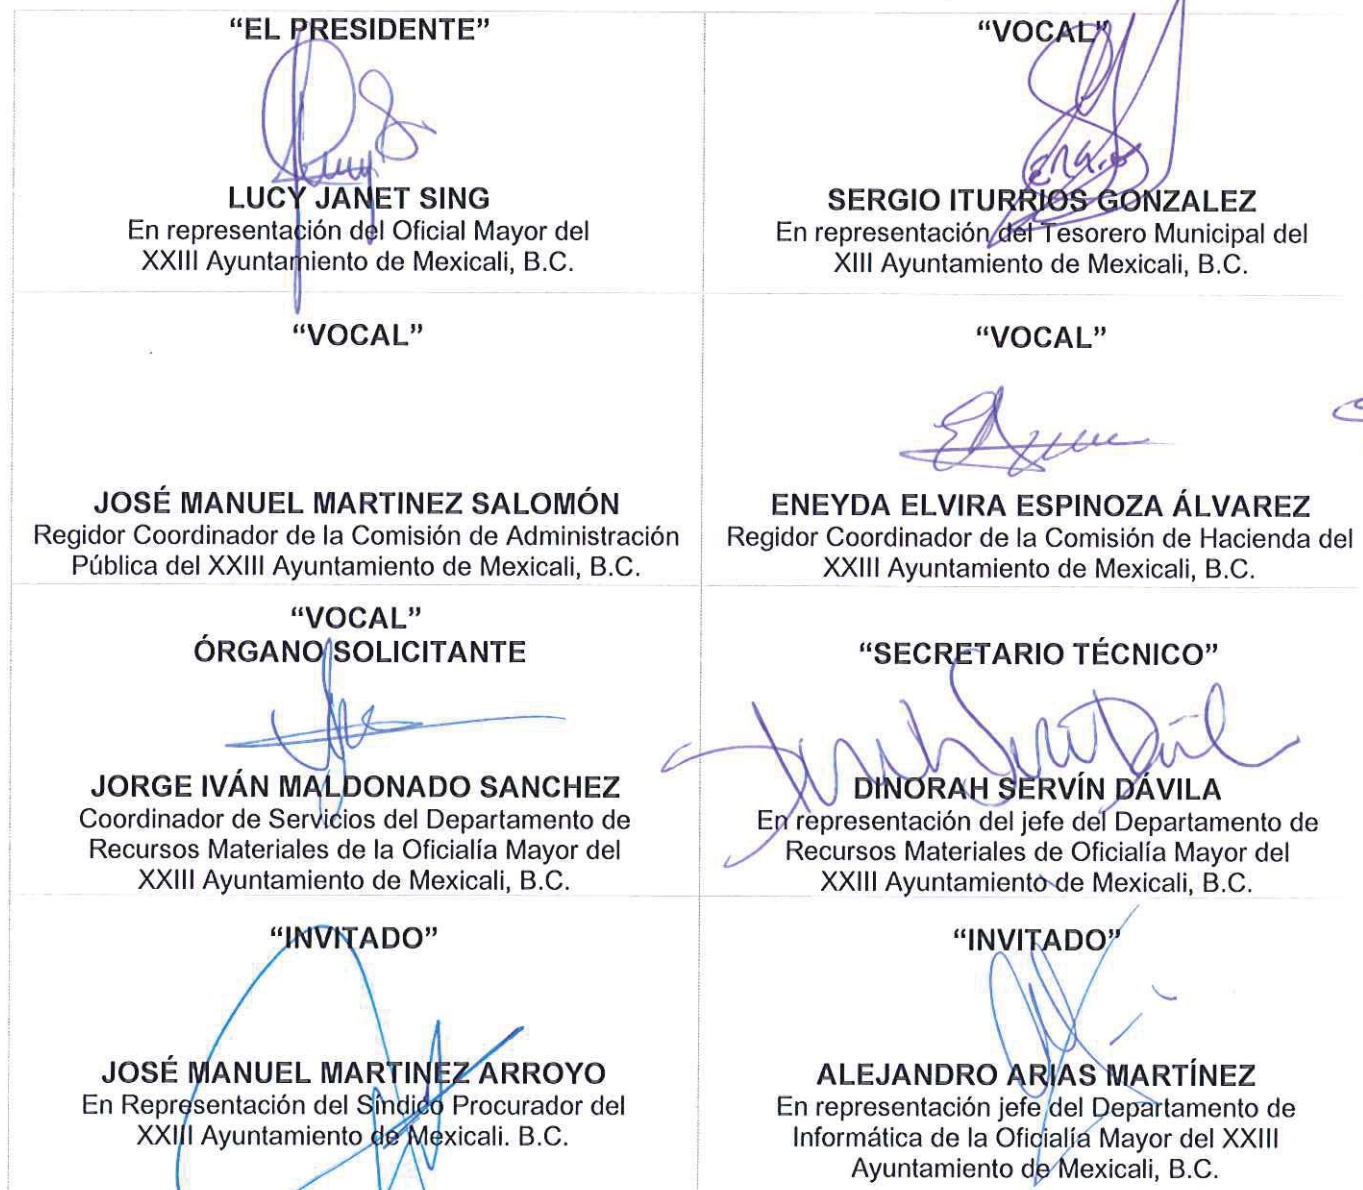 “EL PRESIDENTE”
LUCY JANET SING
En representación del Oficial Mayor del
XXIII Ayuntamiento de Mexicali, B.C.
“VOCAL”
SERGIO ITURRIOS GONZALEZ
En representación del Tesorero Municipal del
XIII Ayuntamiento de Mexicali, B.C.
“VOCAL”
JOSÉ MANUEL MARTINEZ SALOMÓN
Regidor Coordinador de la Comisión de Administración
Pública del XXIII Ayuntamiento de Mexicali, B.C.
“VOCAL”
ENEYDA ELVIRA ESPINOZA ÁLVAREZ
Regidor Coordinador de la Comisión de Hacienda del
XXIII Ayuntamiento de Mexicali, B.C.
“VOCAL”
ÓRGANO SOLICITANTE
JORGE IVÁN MALDONADO SANCHEZ
Coordinador de Servicios del Departamento de
Recursos Materiales de la Oficialía Mayor del
XXIII Ayuntamiento de Mexicali, B.C.
“SECRETARIO TÉCNICO”
DINORAH SERVÍN DÁVILA
En representación del jefe del Departamento de
Recursos Materiales de Oficialía Mayor del
XXIII Ayuntamiento de Mexicali, B.C.
“INVITADO”
JOSÉ MANUEL MARTINEZ ARROYO
En Representación del Síndico Procurador del
XXIII Ayuntamiento de Mexicali. B.C.
“INVITADO”
ALEJANDRO ARIAS MARTÍNEZ
En representación jefe del Departamento de
Informática de la Oficialía Mayor del XXIII
Ayuntamiento de Mexicali, B.C.